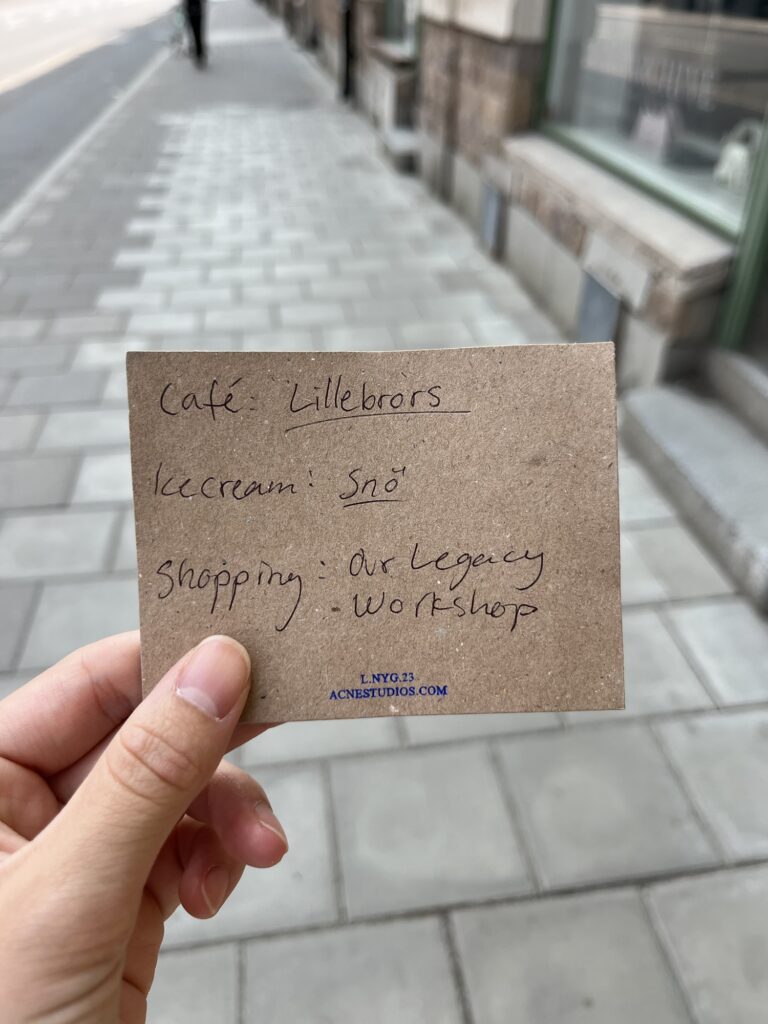 Café: Lillebrors
Icecream: Snö
Shopping: Our Legacy
Workshop
L.NYG.23
ACNESTUDIOS.COM